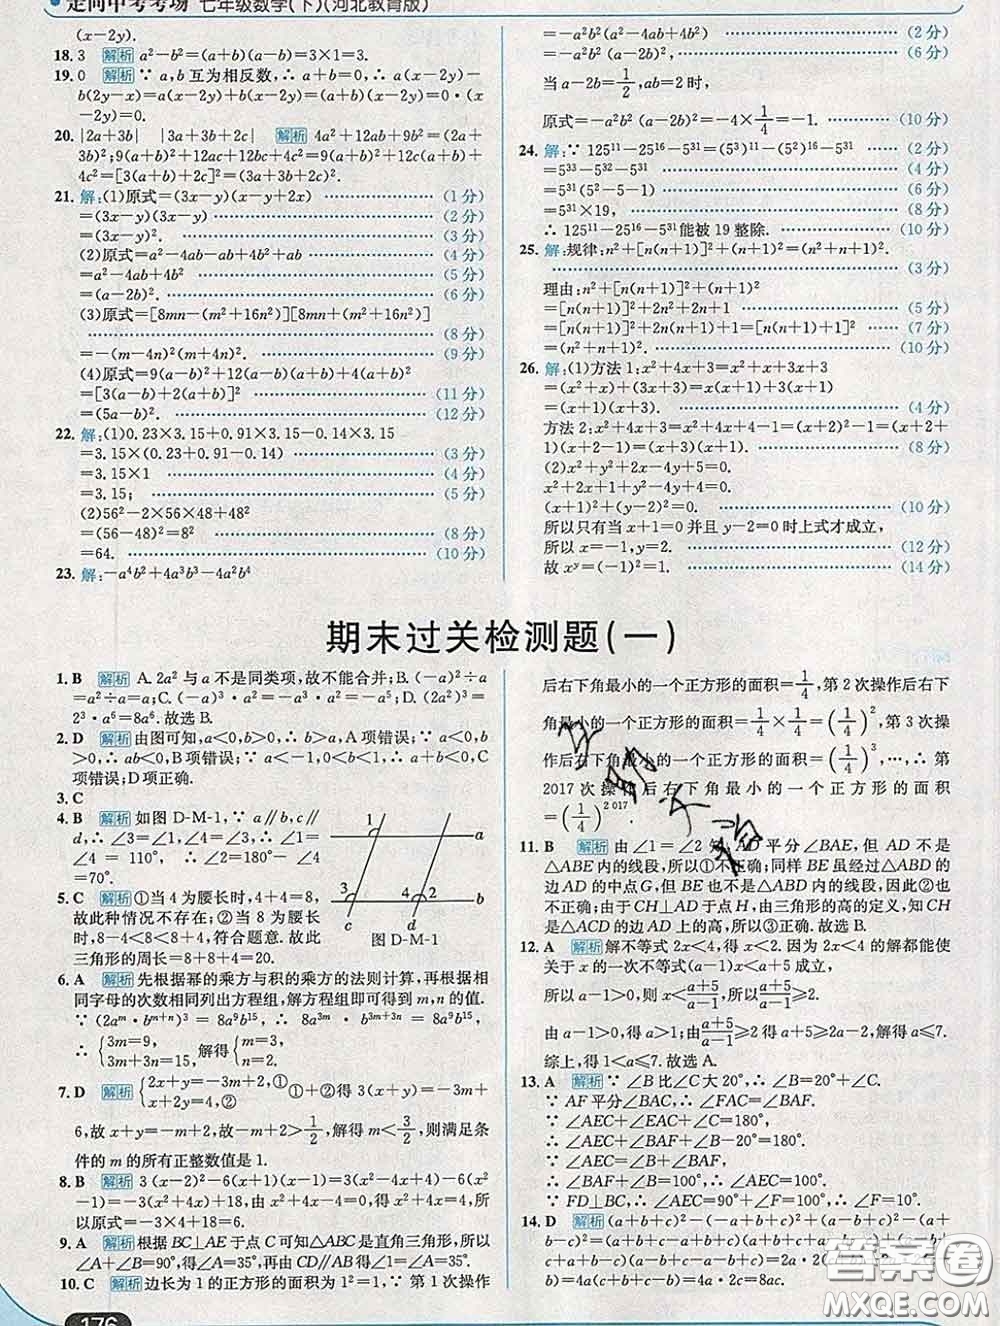 走向中考考场 七年级数学(下)(河北教育版)
(x-2y).
18. 3 解析 a²-b²=(a+b)(a-b)=3×1=3.
19. 0 解析 ∵a,b互为相反数,∴a+b=0,∴a(x-2y)-
b(2y-x)=a(x-2y)+b(x-2y)=(a+b)(x-2y)=0·(x
-2y)=0.
20. |2a+3b| |3a+3b+2c| 解析 4a²+12ab+9b²=(2a+
3b)²;9(a+b)²+12ac+12bc+4c²=9(a+b)²+12c(a+b)+
4c²=[3(a+b)+2c]²=(3a+3b+2c)².
21. 解:(1)原式=(3x-y)(x-y+2x) (1分)
=(3x-y)(3x-y) (2分)
=(3x-y)². (3分)
(2)原式=a²-4ab-ab+4b²+ab (4分)
=a²-4ab+4b² (5分)
=(a-2b)². (6分)
(3)原式=[8mn-(m²+16n²)][8mn+(m²+16n²)]
(8分)
=-(m-4n)²(m+4n)². (9分)
(4)原式=9(a-b)²+12(a-b)(a+b)+4(a+b)²
=[3(a-b)+2(a+b)]² (11分)
=(5a-b)². (12分)
22. 解:(1)0.23×3.15+0.91×3.15-0.14×3.15
=3.15×(0.23+0.91-0.14) (3分)
=3.15×1 (4分)
=3.15; (5分)
(2)56²-2×56×48+48²
=(56-48)²=8² (8分)
=64. (10分)
23. 解:-a⁴b²+4a³b³-4a²b⁴
=-a²b²(a²-4ab+4b²) (2分)
=-a²b²(a-2b)². (6分)
当a-2b=1/2,ab=2时,
原式=-a²b²(a-2b)²=-4×1/4=-1. (10分)
24. 解:∵125¹¹-25¹⁶-5³¹=(5³)¹¹-(5²)¹⁶-5³¹ (2分)
=5³³-5³²-5³¹ (4分)
=5³¹(5²-5-1) (6分)
=5³¹×19, (8分)
∴125¹¹-25¹⁶-5³¹能被19整除. (10分)
25. 解:规律:n²+[n(n+1)]²+(n+1)²=(n²+n+1)².
(3分)
理由:n²+[n(n+1)]²+(n+1)²
=[n(n+1)]²+2n²+2n+1 (5分)
=[n(n+1)]²+2n(n+1)+1=[n(n+1)+1]² (7分)
=(n²+n+1)². (10分)
26. 解:(1)方法1:x²+4x+3=x²+x+3x+3
=(x²+x)+(3x+3)=x(x+1)+3(x+1)
=(x+1)(x+3). (4分)
方法2:x²+4x+3=x²+4x+4-1=(x+2)²-1=(x+2+
1)(x+2-1)=(x+3)(x+1). (8分)
(2)x²+y²+2x-4y+5=0.
x²+2x+1+y²-4y+4=0.
(x+1)²+(y-2)²=0. (10分)
所以只有当x+1=0并且y-2=0时上式才成立,
所以x=-1,y=2. (12分)
故xʸ=(-1)²=1. (14分)
期末过关检测题(一)
1. B 解析 A.2a²与a不是同类项,故不能合并;B.(-a)²÷a
=a²÷a=a;C.(-a)³·a²=-a³·a²=-a⁵;D.(2a²)³=
2³·a⁶=8a⁶.故选B.
2. D 解析 由图可知,a<0,b>0,∴b>a,A项错误;∵a<0,b
>0,∴ab<0,B项错误;∵a<-1,0<b<1,∴a+b<0,C
项错误;D项正确.
3. C
4. B 解析 如图D-M-1,∵a∥b,c∥
d,∴∠3=∠1,∠4=∠3,∴∠1=
∠4=110°,∴∠2=180°-∠4
=70°.
1
a
3
4
2
b
图D-M-1
5. C 解析 ①当4为腰长时,4+4=8,
故此种情况不存在;②当8为腰长
时,8-4<8<8+4,符合题意.故此
三角形的周长=8+8+4=20.
6. A 解析 先根据幂的乘方与积的乘方的法则计算,再根据相
同字母的次数相同列出方程组,解方程组即可得到m,n的值.
∵(2aᵐ·bᵐ⁺ⁿ)³=8a⁹b¹⁵,∴8a³ᵐ·b³ᵐ⁺³ⁿ=8a⁹b¹⁵,
∴{3m=9, 3m+3n=15, 解得{m=3, n=2.
7. D 解析 {2x+y=-3m+2,① x+2y=4,② ①+②得3(x+y)=-3m+
6,故x+y=-m+2,故-m+2>1/2,解得m<3/2,则满足条
件的m的所有正整数值是1.
8. B 解析 3(x-2)²-6(x+1)(x-1)=3(x²-4x+4)-6(x²
-1)=-3(x²+4x)+18,由x²+4x-4=0,得x²+4x=4,所
以原式=-3×4+18=6.
9. A 解析 根据BC⊥AE于点C可知△ABC是直角三角形,所以
∠A+∠B=90°,得∠A=35°,再由CD∥AB得∠1=∠A=35°.
10. C 解析 边长为1的正方形的面积为1²=1,∵第1次操作
后右下角最小的一个正方形的面积=1/4,第2次操作后右下
角最小的一个正方形的面积=1/4×1/4=(1/4)²,第3次操
作后右下角最小的一个正方形的面积=(1/4)³,…,∴第
2017次操作后右下角最小的一个正方形的面积
=(1/4)²⁰¹⁷.
11. B 解析 由∠1=∠2知AD平分∠BAE,但AD不是
△ABE内的线段,所以①不正确;同样BE虽经过△ABD的
边AD的中点G,但BE也不是△ABD内的线段,因此②也
不正确;由于CH⊥AD于点H,由三角形的高的定义,知CH
是△ACD的边AD上的高,所以③正确.故选B.
12. A 解析 解不等式2x<4,得x<2.因为2x<4的解都能使
关于x的一次不等式(a-1)x<a+5成立,
所以a-1>0,则x<(a+5)/(a-1),所以(a+5)/(a-1)≥2.
由a-1>0得a>1;由(a+5)/(a-1)≥2得a+5≥2a-2,解得a≤7.
综上,得1<a≤7.故选A.
13. A 解析 ∵∠B比∠C大20°,∴∠B=∠C+20°.
∵AF平分∠BAC,∴∠FAC=∠BAF.
∵∠AEC+∠C+∠CAE=180°,
∴∠AEC+∠B-20°+∠BAF=180°,
∴∠AEC=∠B+∠BAF,
∴∠AEC=∠B+∠BAF=100°.
∵FD⊥BC,∴∠AEC=90°+∠F=100°,∴∠F=10°.
14. D 解析 (a+b+c)²-(-a+b+c)²+(a-b+c)²-(a+b-
c)²=
b)=4a(b+c)+4a(c-b)=4a·2c=8ac.
互助天猫
答案圈
MXQE.COM
176